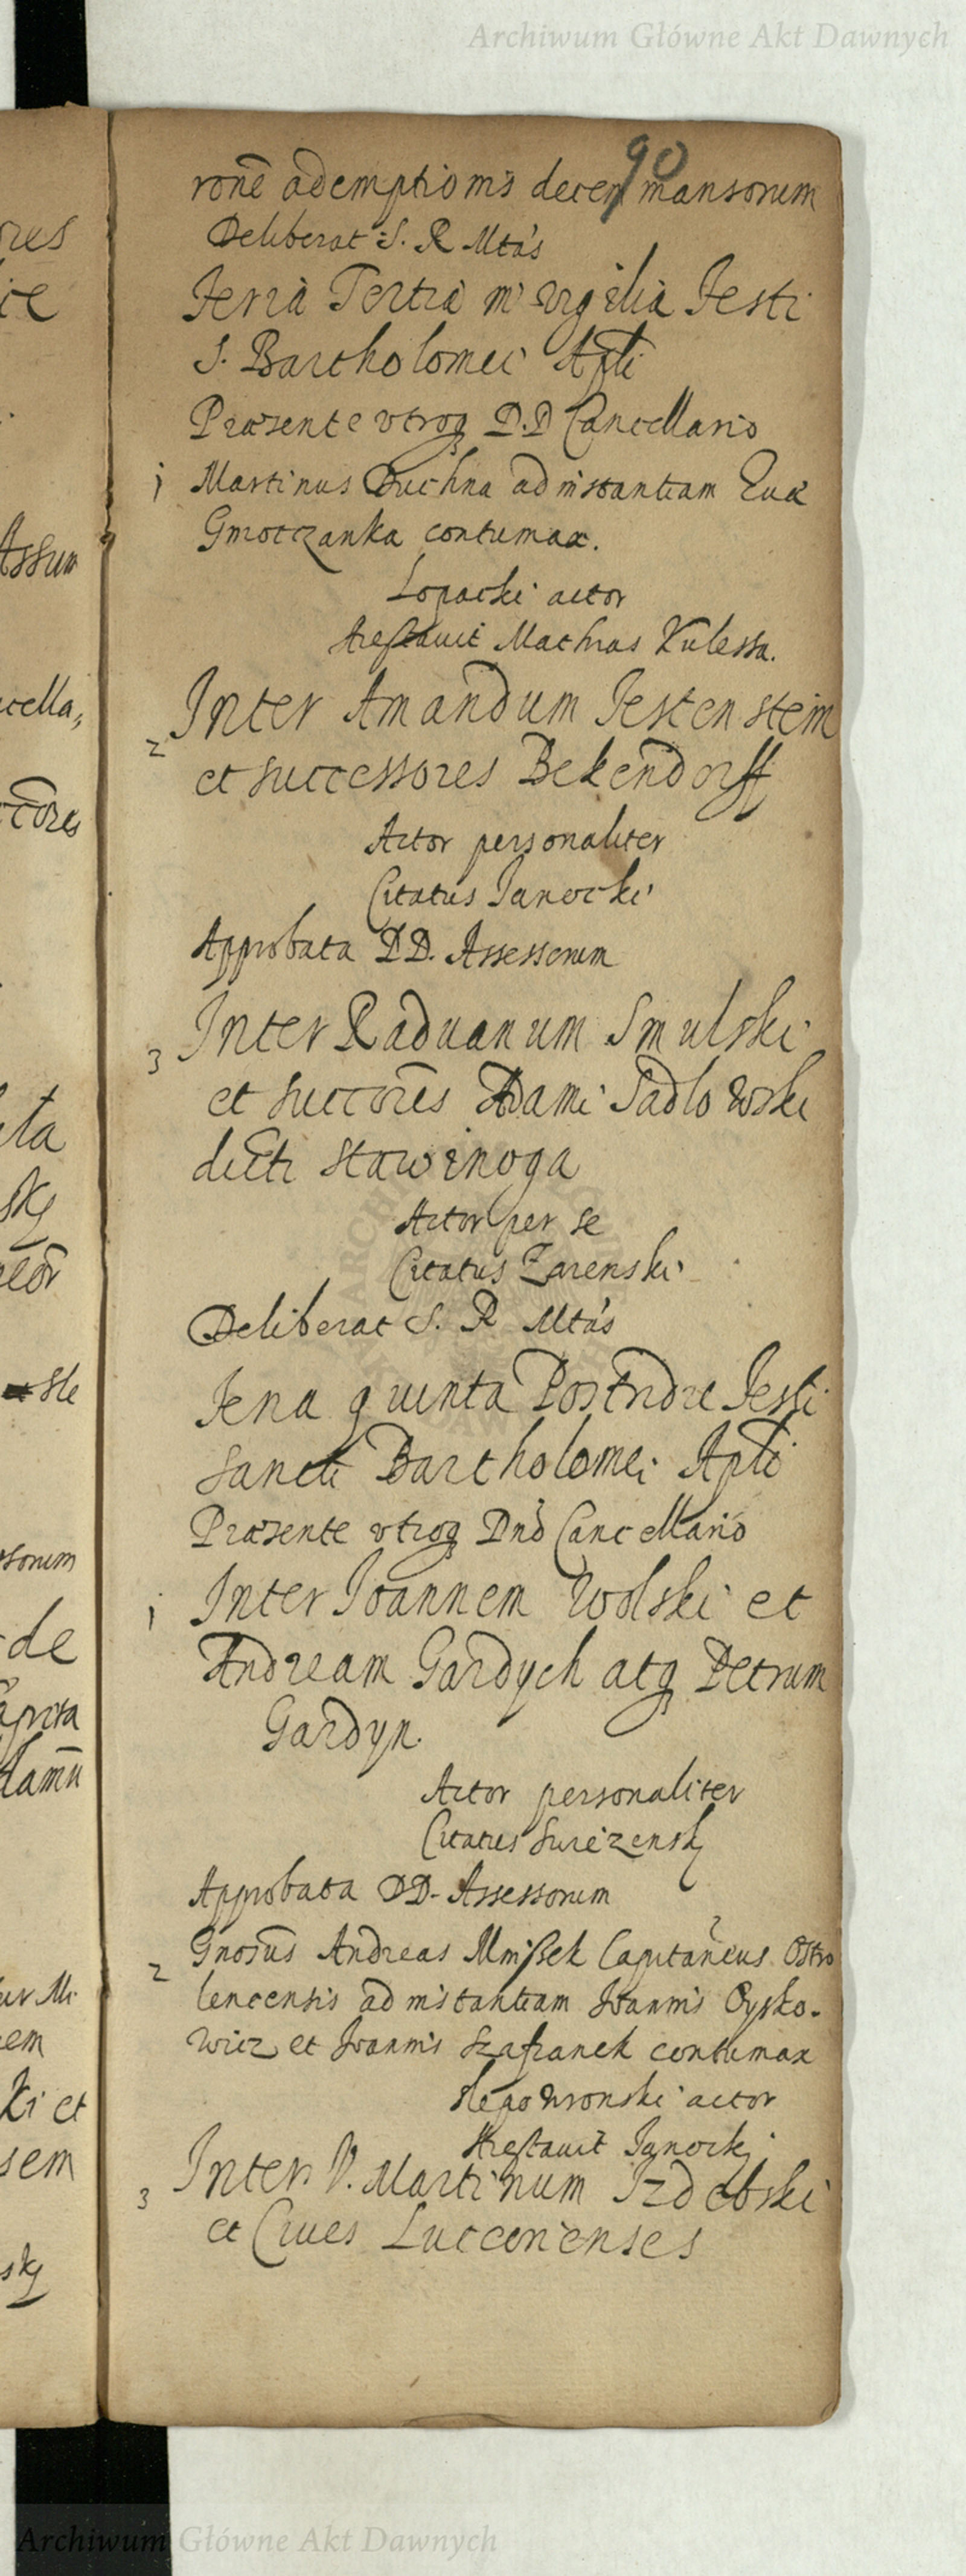 Archiwum Główne Akt Dawnych
90
ronē ademptionis decem mansorum
Deliberat S. R Mtãs
Feria Tertia in vigilia Festi
S. Bartholomei Apli
Præsente vtroq D.D Cancellario
1 Martinus Duchna ad instantiam Euæ
Gmotczanka contumax.
Lopacki actor
Arestauit Mathias Kulessa.
2 Inter Amandum Festenstein
et successores Bekendorff
Actor personaliter
Citatus Janocki
Approbata DD. Assessorum
3 Inter Raduanum Smulski
et succores Adami Sadlowski
dicti Stawinoga
Actor per se
Citatus Zarenski
Deliberat S. R Mtãs
Feria quinta Postridie Festi
Sancti Bartholomei Apli
Præsente vtroq Dno Cancellario
1 Inter Joannem Wolski et
Andream Gardych atq Petrum
Gardyn.
Actor personaliter
Citatus
Approbata DD. Assessorum
2 Gnosus Andreas Mnissek Capitaneus Ostro
lencensis ad instantiam Joannis Cysko-
wicz et Joannis Szafranek contumax
Slepowronski actor
Arestauit Janocki
3 Inter V. Martinum Izdebski
et Ciues Lucconienses
Archiwum Główne Akt Dawnych